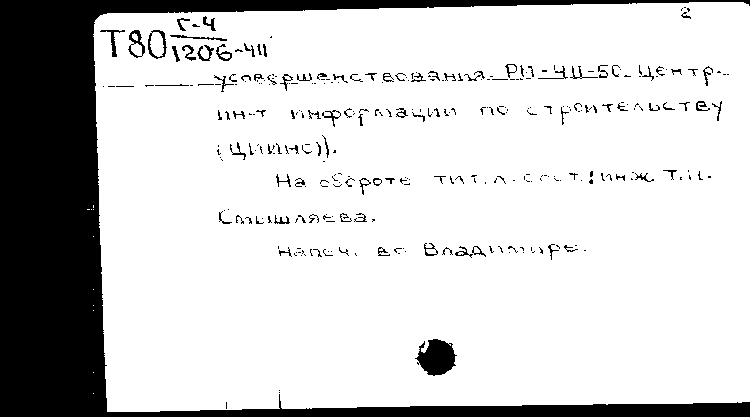 2
Г-4
Т80 1206-411
усовершенствования. РП-411-50. Центр.
ин-т информации по строительству
(ЦИИНС)).
На обороте тит.л. сост.: инж. Т.И.
Смышляева.
Напеч. во Владимире.